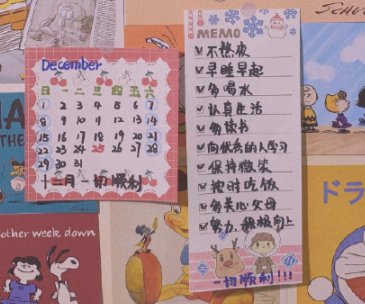 SCHU
December
日 一 二 三 四 五 六
1 2 3 4 5 6 7
8 9 10 11 12 13 14
15 16 17 18 19 20 21
22 23 24 25 26 27 28
29 30 31
十二月 一切顺利
MEMO
不熬夜
早睡早起
多喝水
认真生活
多读书
向优秀的人学习
保持微笑
按时吃饭
多关心父母
努力 积极向上
一切顺利!!!
THE
other week down
ドラ